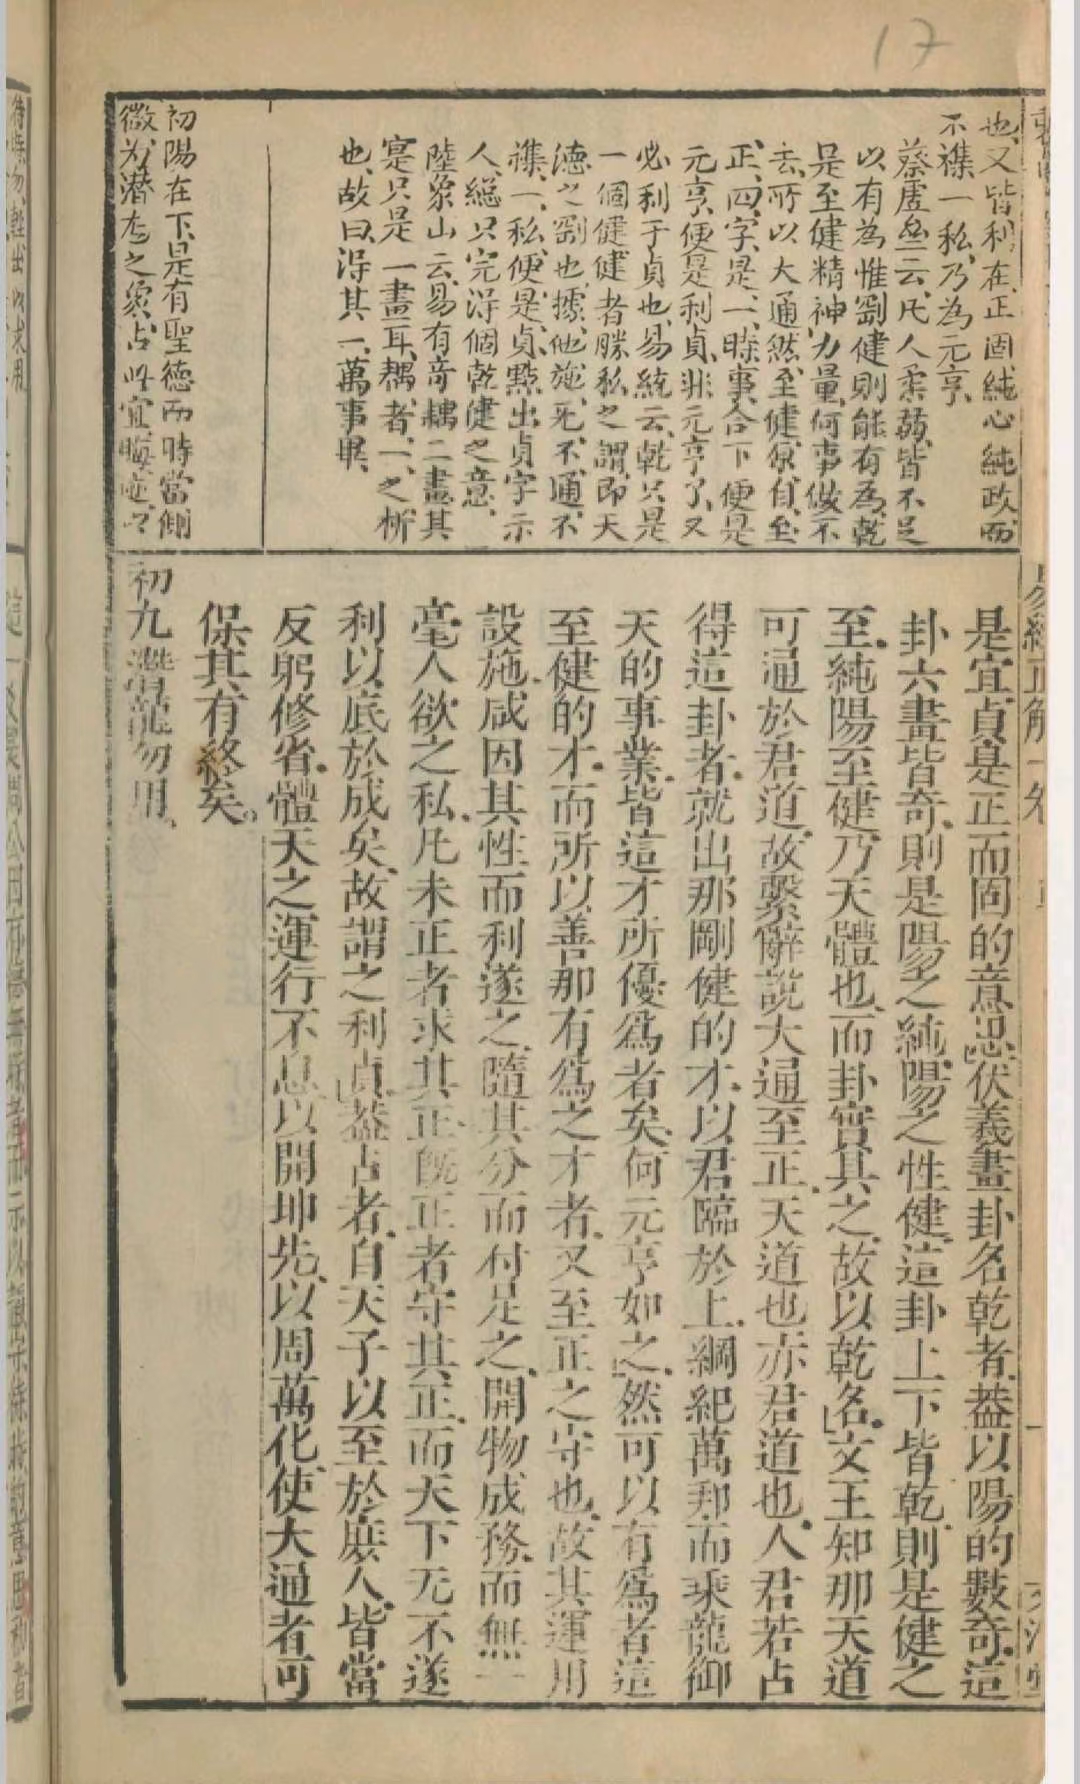 17
也、又皆利在正固、純心純政、而
不襍一私、乃為元亨、
蔡虛齋云、凡人柔弱、皆不足
以有為、惟剛健則能有為、乾
是至健、精神力量、何事做不
去、所以大通、然至健、原自至
正、四字是一時事、合下便是
元亨、便是利貞、非元亨了、又
必利于貞也、易統云、乾只是
一個健、健者勝私之謂、即天
德之剛也、據他施死不通、不
襍一私、便是貞、點出貞字示
人、總只完得個乾健之意、
陸象山云、易有奇耦二畫、其
寔只是一畫耳、耦者、一之析
也、故曰、得其一、萬事畢、
初陽在下、是有聖德而時當側
微、為潛龙之象、占此宜晦迹、
是宜、貞是正而固的意思、伏羲畫卦名乾者、蓋以陽的數奇、這
卦六畫皆奇、則是陽之純、陽之性健、這卦上下皆乾、則是健之
至、純陽至健、乃天體也、而卦實具之、故以乾名、文王知那天道
可通於君道、故繫辭說大通至正、天道也、亦君道也、人君若占
得這卦者、就出那剛健的才、以君臨於上、綱紀萬邦、而乘龍御
天的事業、皆這才所優爲者矣、何元亨如之、然可以有爲者、這
至健的才、而所以善那有爲之才者、又至正之守也、故其運用
設施、咸因其性而利遂之、隨其分而付足之、開物成務、而無一
毫人欲之私、凡未正者求其正、旣正者守其正、而天下无不遂
利以底於成矣、故謂之利貞、蓋占者、自天子以至於庶人、皆當
反躬修省、體天之運行不息、以開坤先、以周萬化、使大通者可
保其有終矣。
初九潛龍勿用、